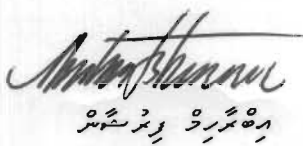 އިބްރާހިމް ފިރުޝާން